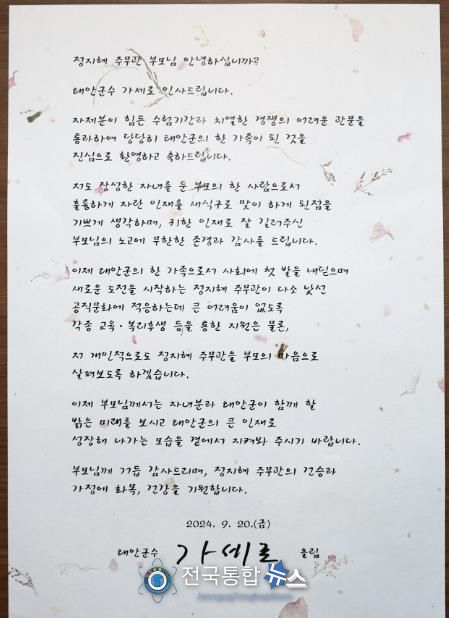 정지혜 주무관 부모님 안녕하십니까?
태안군수 가세로 인사드립니다.
자제분이 힘든 수험기간과 치열한 경쟁의 어려운 관문을
통과하여 당당히 태안군의 한 가족이 된 것을
진심으로 환영하고 축하드립니다.
저도 장성한 자녀를 둔 부모의 한 사람으로서
훌륭하게 자란 인재를 새식구로 맞이 하게 된점을
기쁘게 생각하며, 귀한 인재로 잘 길러주신
부모님의 노고에 무한한 존경과 감사를 드립니다.
이제 태안군의 한 가족으로서 사회에 첫 발을 내딛으며
새로운 도전을 시작하는 정지혜 주무관이 다소 낯선
공직문화에 적응하는데 큰 어려움이 없도록
각종 교육·복리후생 등을 통한 지원은 물론,
저 개인적으로도 정지혜 주무관을 부모의 마음으로
살펴보도록 하겠습니다.
이제 부모님께서는 자녀분과 태안군이 함께 할
밝은 미래를 보시고 태안군의 큰 인재로
성장해 나가는 모습을 곁에서 지켜봐 주시기 바랍니다.
부모님께 거듭 감사드리며, 정지혜 주무관의 건승과
가정에 화목, 건강을 기원합니다.
2024. 9. 20.(금)
태안군수 가세로 올림
전국통합뉴스